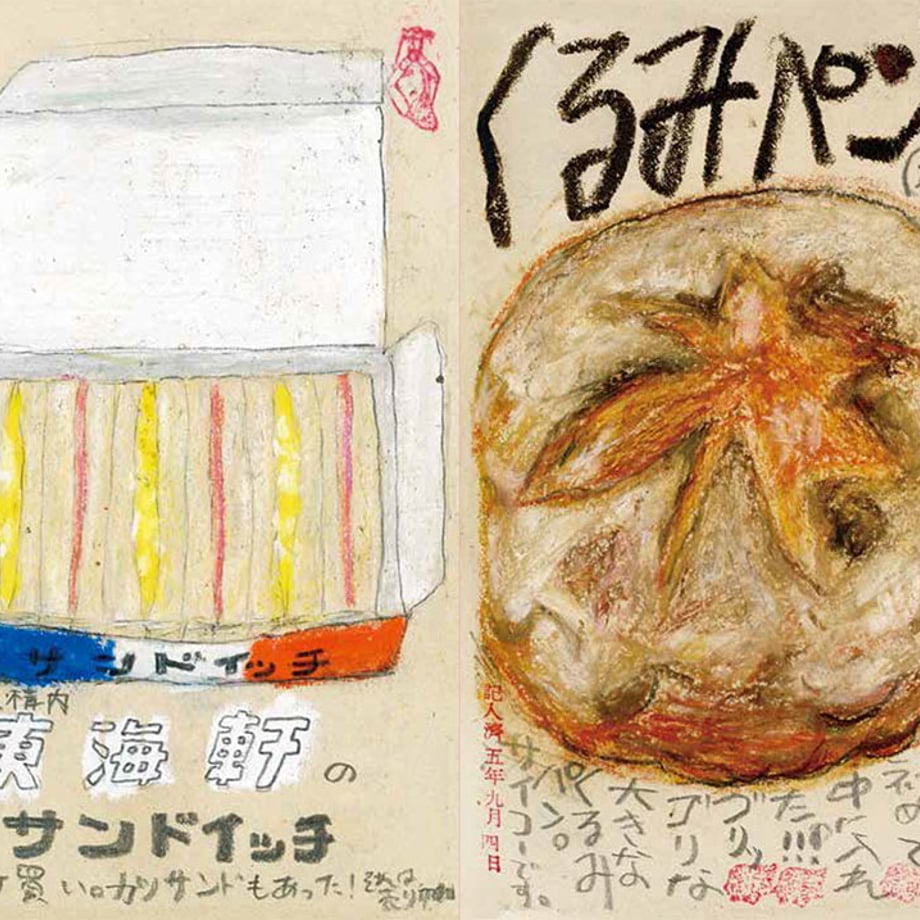 サンドイッチ
構内
東海軒の
サンドイッチ
買い。カツサンドもあった!
くるみパン
中に入れ
た!!!
ゴリな
大きな
くるみ
パン。
サイコーです。
記入濟五年九月四日